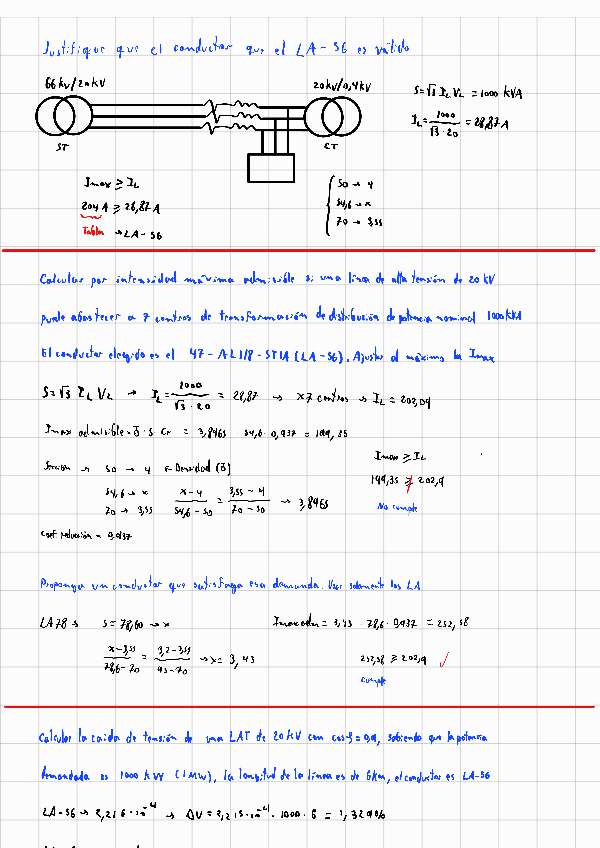 Justifique que el conductor que el LA-56 es valido
66 kV/20kV
20kV/0,4kV
S=√3 IL VL = 1000 kVA
IL= 1000 / √3·20 = 28,87 A
ST
CT
Imax ≥ IL
204 A ≥ 28,87 A
Tabla → LA-56
50 → 4
54,6 → x
70 → 3,55
Calcular por intensidad máxima admisible si una linea de alta tensión de 20 kV
puede abastecer a 7 centros de transformación de distribución de potencia nominal 1000kVA
El conductor elegido es el 47-AL1/8-ST1A (LA-56). Ajustar al máximo la Imax
S=√3 IL VL → IL= 1000 / √3·20 = 28,87 → x7 centros → IL = 202,09
Imax admisible = δ · S · Cr = 3,8465 · 54,6 · 0,937 = 199,35
Sección → 50 → 4 ← Densidad (δ)
54,6 → x
70 → 3,55
x-4 / 54,6-50 = 3,55-4 / 70-50 → 3,8465
Imax ≥ IL
199,35 ≥ 202,9
No cumple
Coef. reducción = 0,937
Proponga un conductor que satisfaga esa demanda. Usar solamente los LA
LA78 → S=78,60 → x
Imax adm = 3,43 · 78,6 · 0,937 = 252,58
x-3,55 / 78,6-70 = 3,2-3,55 / 95-70 → x= 3,43
252,58 ≥ 202,9
cumple
Calcular la caida de tensión de una LAT de 20kV con cosφ=0,9, sabiendo que la potencia
demandada es 1000 kW (1MW), la longitud de la linea es de 6km, el conductor es LA-56
LA-56 → 2,216·10⁻⁴ → ΔU = 2,215·10⁻⁴ · 1000 · 6 = 1,329%